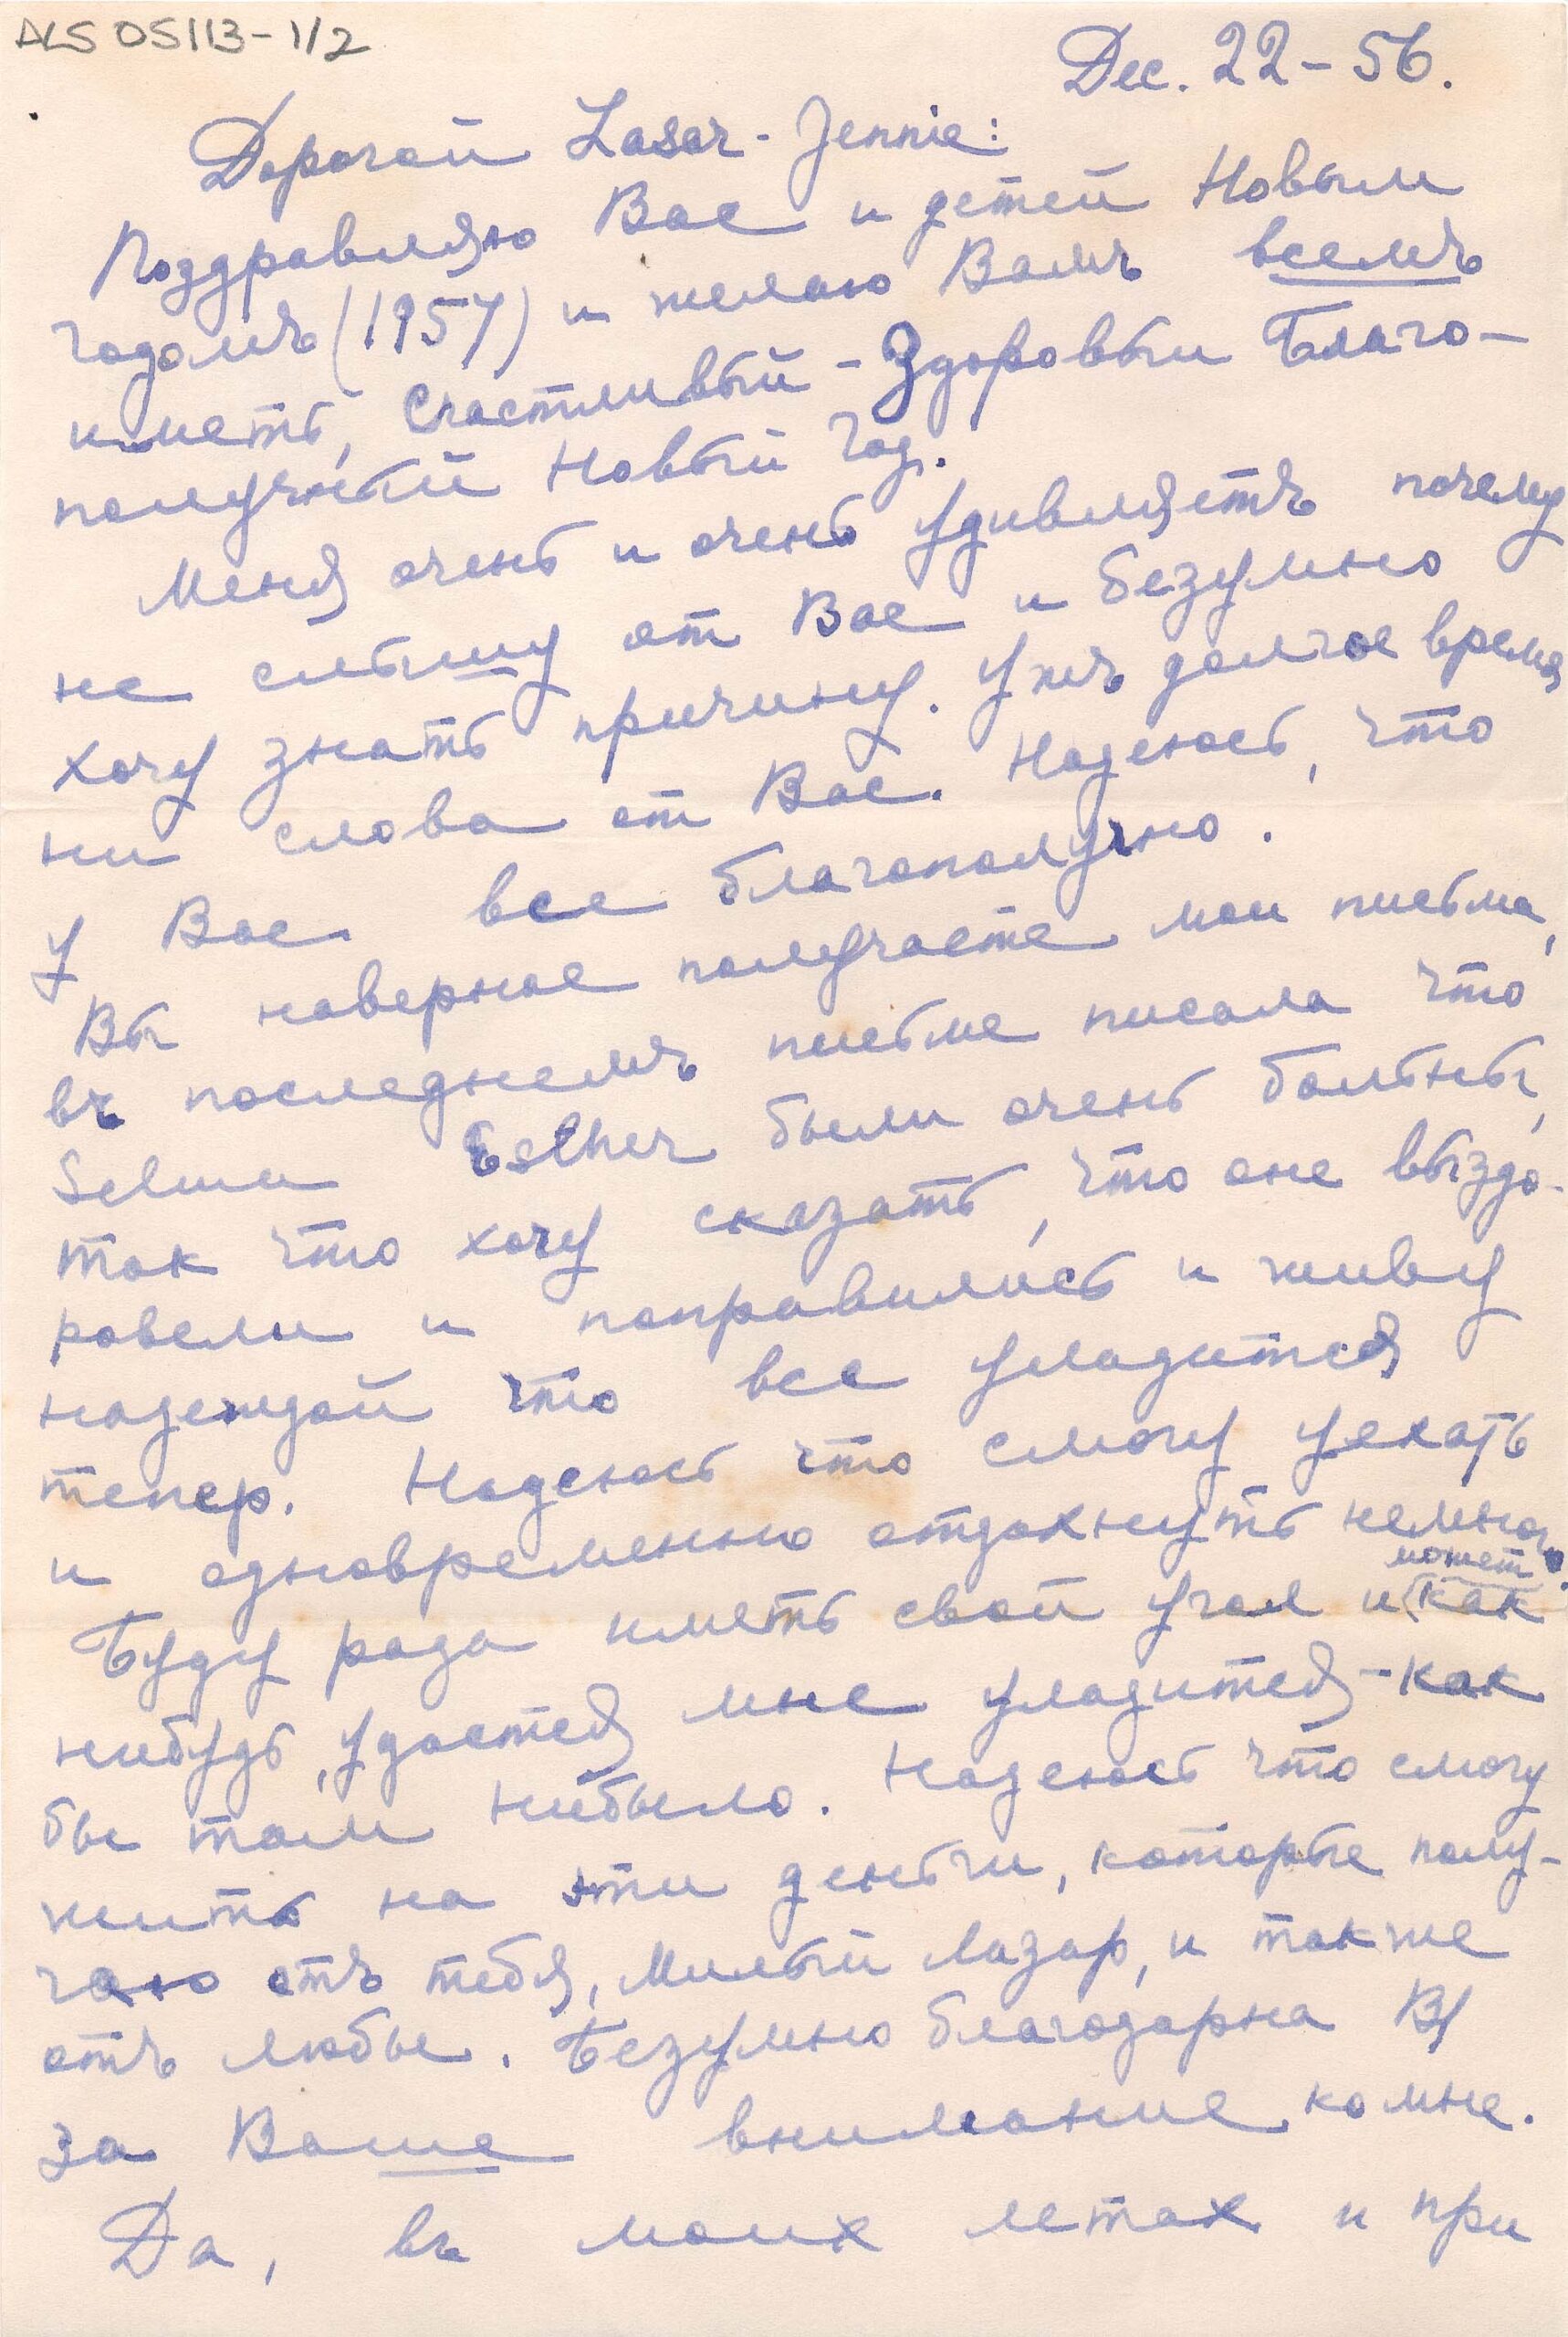 ALS 05113-1/2
Dec. 22-56.
Дорогой Lasar-Jennie:
Поздравляю Вас и детей Новым
годомъ (1957) и желаю Вамъ всемъ
иметь, Счастливый - Здоровый Благо-
получный Новый год.
Меня очень и очень удивляетъ почему
не слышу от Вас и безумно
хочу знать причину. Ужъ долгое время
ни слова от Вас. Надеюсь, что
у Вас все благополучно.
Вы наверное получаете мои письма,
въ последнемъ письме писала что
Selma Esther были очень больны,
так что хочу сказать, что оне выздо-
ровели и поправились и живу
надеждой что все уладится
тепер. Надеюсь что смогу уехать
и одновременно отдохнуть немног.
может
Буду рада иметь свой угол и как
нибудь, удастся мне уладится - как
бы там нибыло. Надеюсь что смогу
жить на эти деньги, которые полу-
чаю отъ тебя, милый Лазар, и также
отъ Любы. Безумно благодарна Ву
за Ваше внимание ко мне.
Да, въ моих летах и при